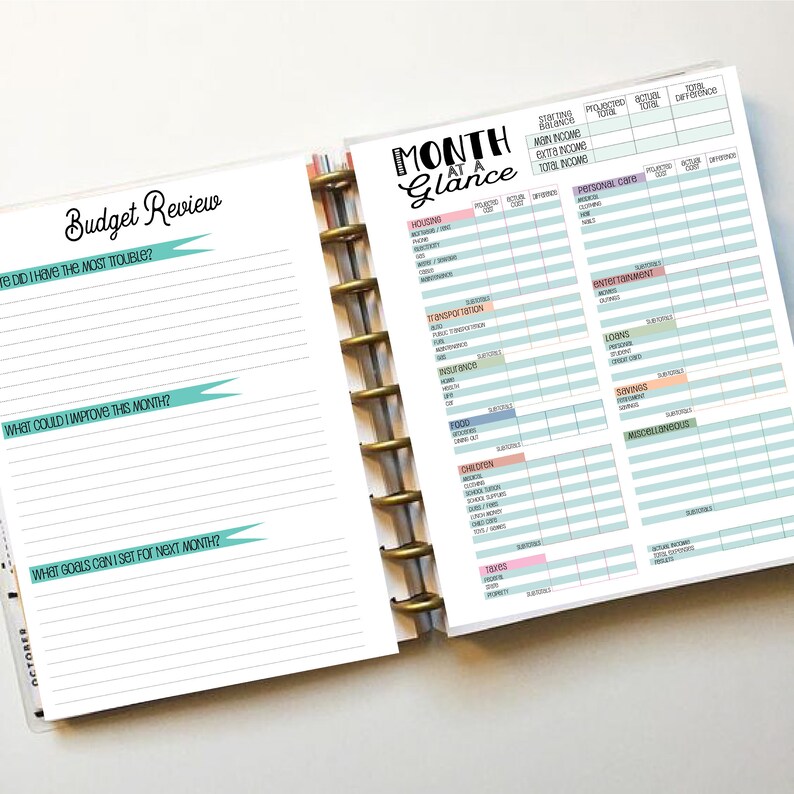 Budget Review
RE DID I HAVE THE MOST TROUBLE?
WHAT COULD I IMPROVE THIS MONTH?
WHAT GOALS CAN I SET FOR NEXT MONTH?
OCTOBER
MONTH
AT A
Glance
STARTING BALANCE PROJECTED TOTAL ACTUAL TOTAL TOTAL DIFFERENCE
MAIN INCOME
EXTRA INCOME
TOTAL INCOME
HOUSING PROJECTED COST ACTUAL COST DIFFERENCE
MORTGAGE / RENT
PHONE
ELECTRICITY
GAS
WATER / SEWAGE
CABLE
MAINTENANCE
SUBTOTALS
TRANSPORTATION
AUTO
PUBLIC TRANSPORTATION
FUEL
MAINTENANCE
GAS
SUBTOTALS
INSURANCE
HOME
HEALTH
LIFE
CAR
SUBTOTALS
FOOD
GROCERIES
DINING OUT
SUBTOTALS
CHILDREN
MEDICAL
CLOTHING
SCHOOL TUITION
SCHOOL SUPPLIES
DUES / FEES
LUNCH MONEY
CHILD CARE
TOYS / GAMES
SUBTOTALS
TAXES
FEDERAL
STATE
PROPERTY
SUBTOTALS
PERSONAL CARE PROJECTED COST ACTUAL COST DIFFERENCE
MEDICAL
CLOTHING
HAIR
NAILS
SUBTOTALS
ENTERTAINMENT
MOVIES
OUTINGS
SUBTOTALS
LOANS
PERSONAL
STUDENT
CREDIT CARD
SUBTOTALS
SAVINGS
RETIREMENT
SAVINGS
SUBTOTALS
MISCELLANEOUS
SUBTOTALS
ACTUAL INCOME
TOTAL EXPENSES
RESULTS